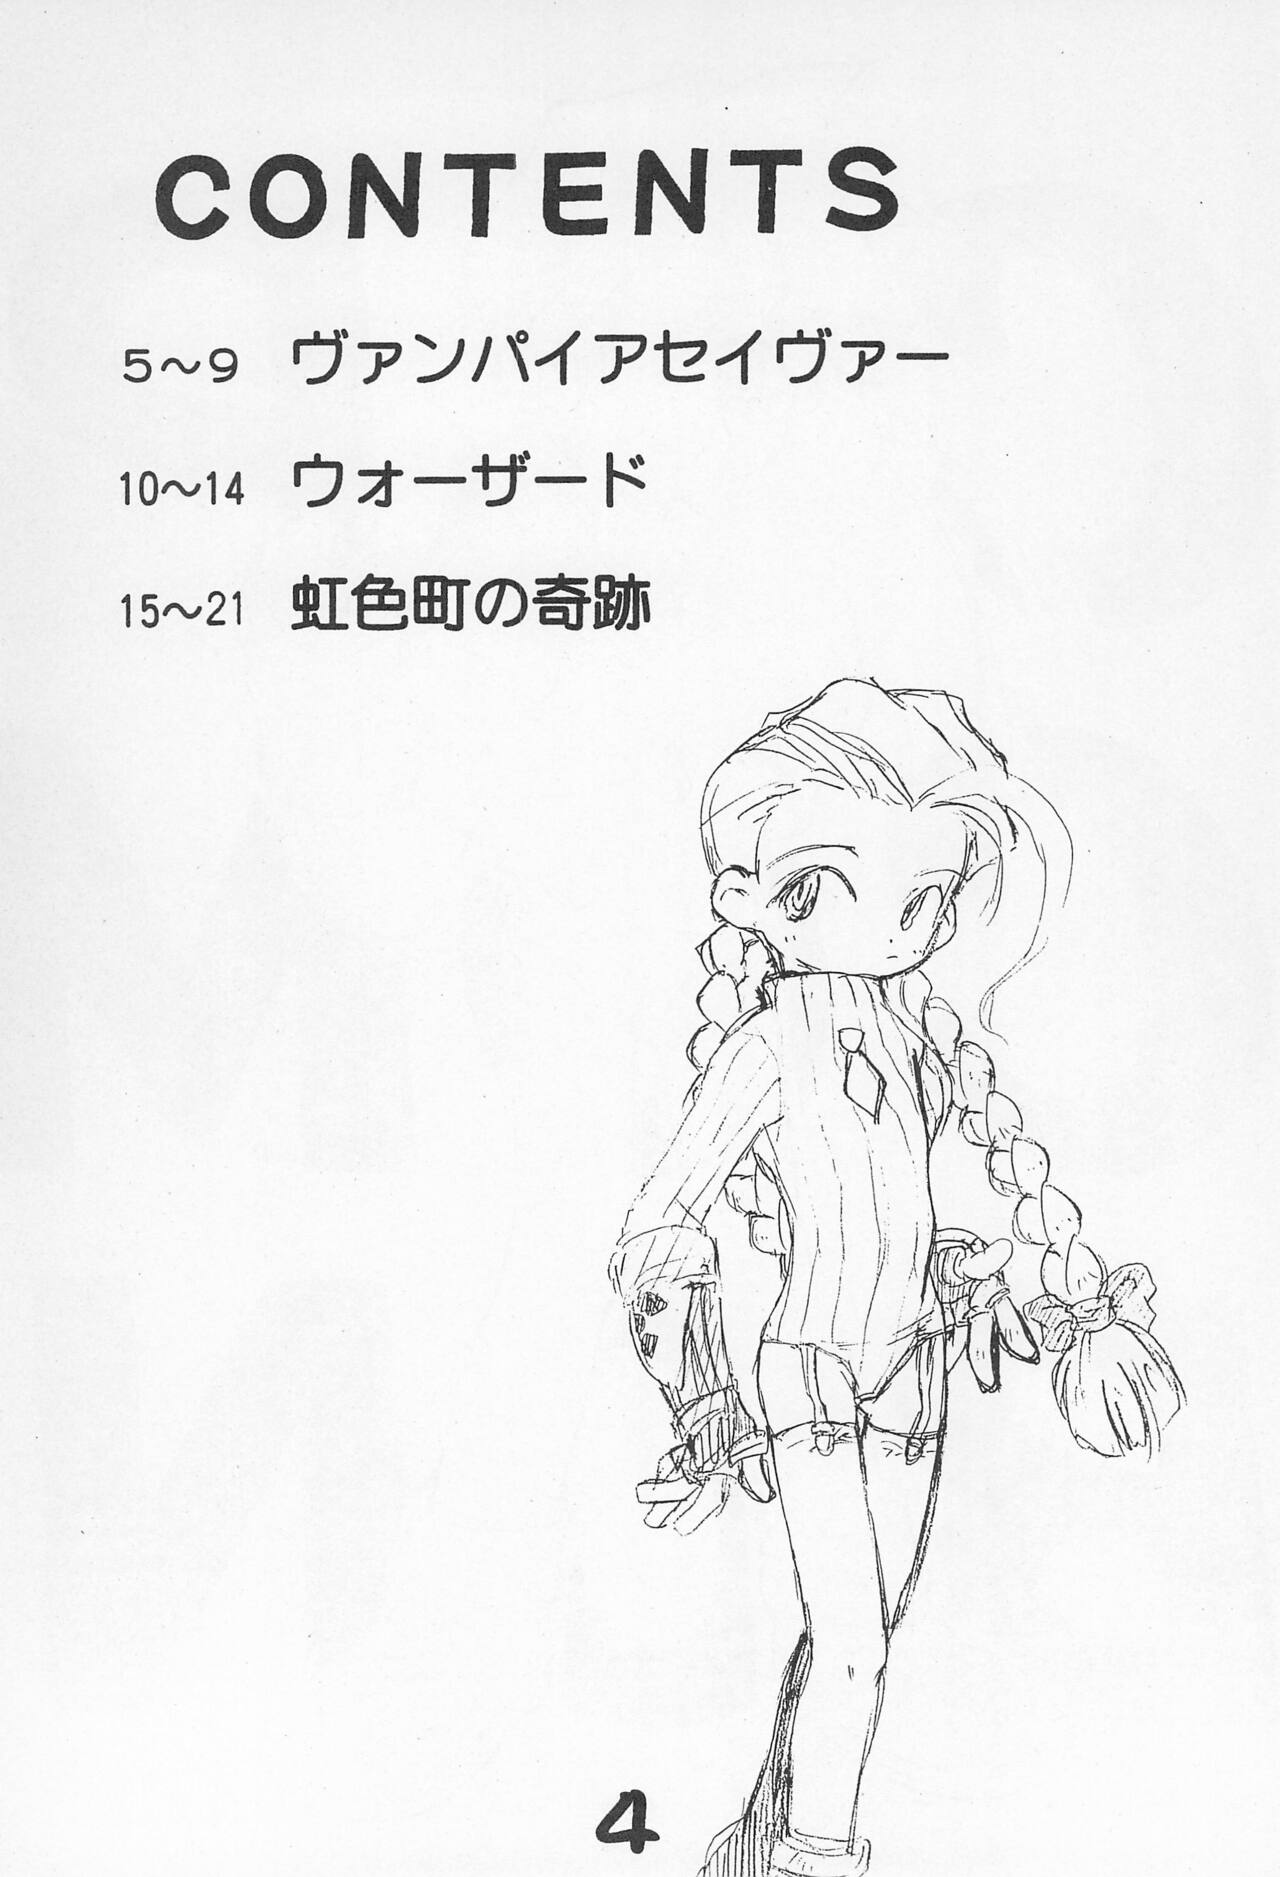 CONTENTS
5〜9 ヴァンパイアセイヴァー
10〜14 ウォーザード
15〜21 虹色町の奇跡
4